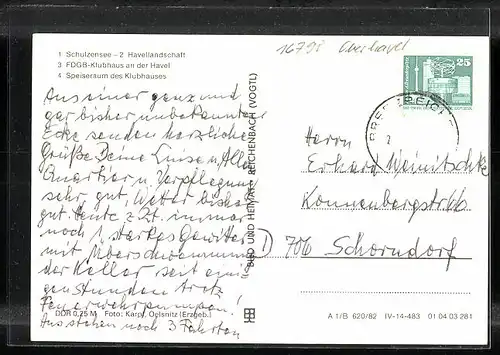 1 Schulzensee – 2 Havellandschaft
3 FDGB-Klubhaus an der Havel
4 Speiseraum des Klubhauses
16795 Oberhavel
25
Aus einer ganz und
gar bisher unbekannten
Ecke senden herzliche
Grüße Deine Luise u. Alla
Quartier u. Verpflegung
sehr gut. Wetter bisher
gut. Heute z. Zt. immer
noch 1 starkes Gewitter
mit Überschwemmung
der Keller seit eini-
gen Stunden trotz
Feuerwehrpumpen!
Ausstehen noch 3 Fahrten
BILD UND HEIMAT REICHENBACH (VOGTL)
Herrn
Erhard
Konnenbergstr. 66
D 706 Schorndorf
DDR 0,25 M Foto: Karpf, Oelsnitz (Erzgeb.)
A 1/B 620/82 IV-14-483 01 04 03 281